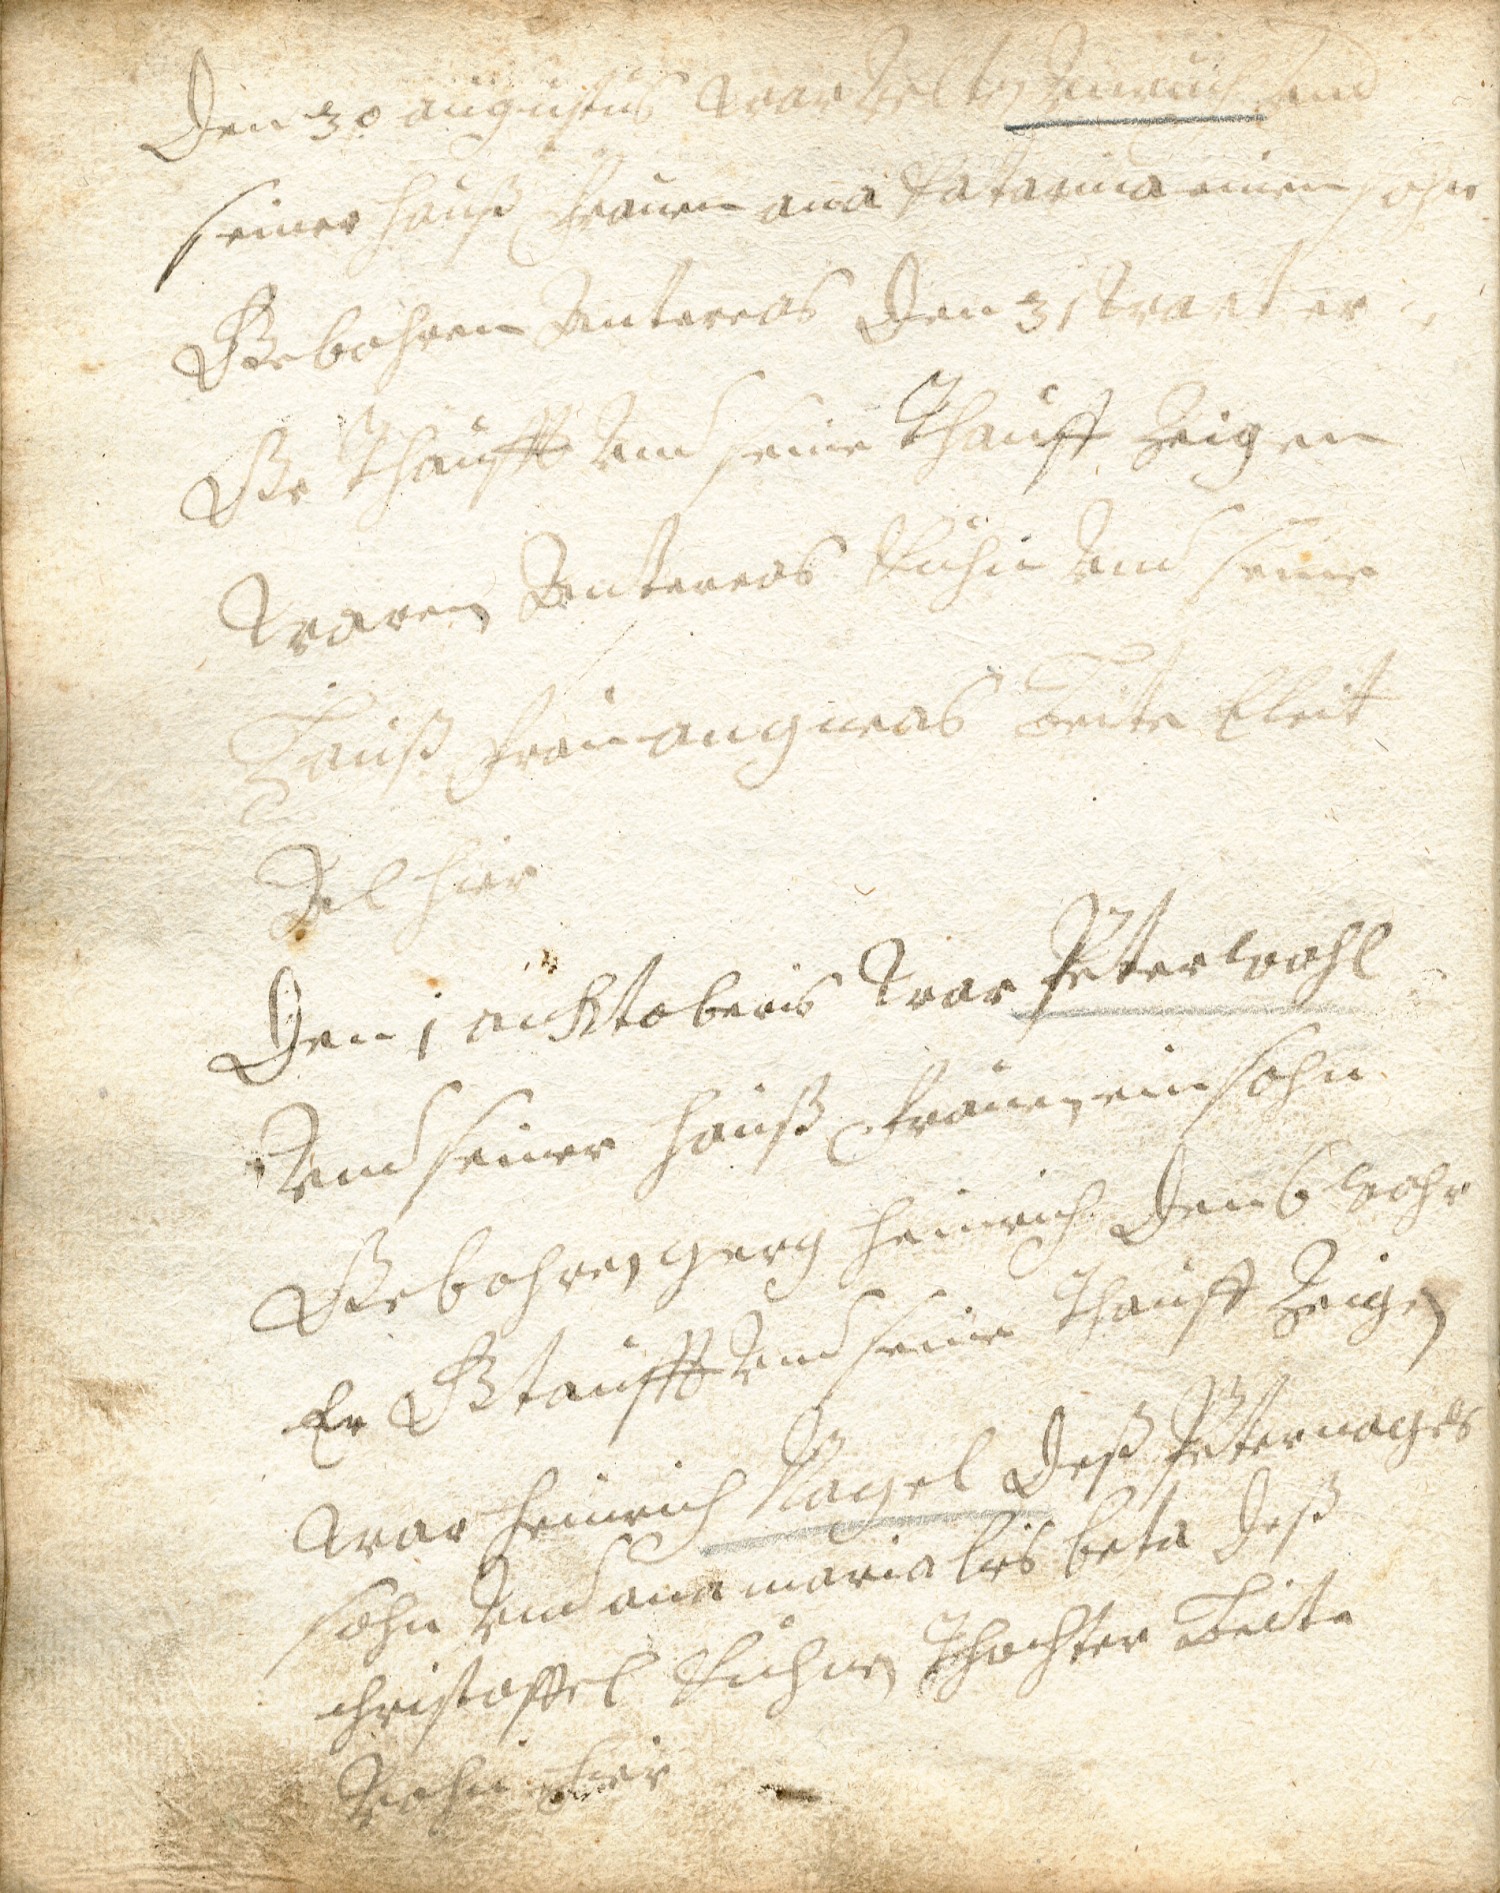 Den 30 augustus war und
seiner hauß frauen ana Catarina einen sohn
Gebohren Antereas Den 31 wart er
Ge Thaufft und seine Thauff Zeigen
waren Antereas Kuhn und seine
Hauß frau angneas Beite
Al hier
Den 1 ochtoberis war Peter wohl
und seiner hauß frauen ein sohn
Gebohren gerg heinrich Den 6 wahr
Er Gtaufft und seine Thauff Zeigen
war heinrich Nagel Deß Peter nagels
sohn und ana maria lisbeta Deß
christoffel Kuhns Thochter Beite
hier